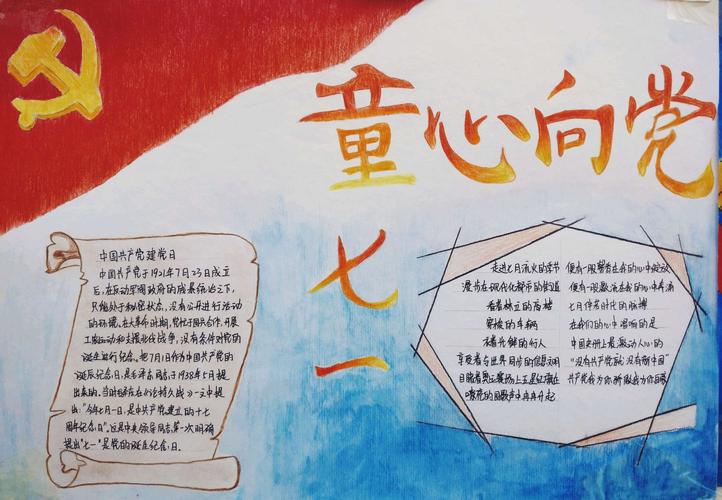 童心向党
七一
中国共产党建党日
中国共产党于1921年7月23日成立
后,在反动军阀政府的残暴统治之下,
只能处于秘密状态,没有公开进行活动
的环境。在大革命时期,党忙于国共合作、开展
工农运动和支援北伐战争,没有条件对党的
诞生进行纪念。把7月1日作为中国共产党的
诞辰纪念日,是毛泽东同志于1938年5月提
出来的。当时毛泽东在《论持久战》一文中提
出:"今年七月一日,是中国共产党建立的十七
周年纪念日"。这是中央领导同志第一次明确
提出"七一"是党的诞生纪念日.
走进七月流火的季节
漫步在现代化都市的街道
看着林立的高楼
穿梭的车辆
和着兴腾的行人
享受着与世界同步的信息文明
目睹着奥运赛场上五星红旗在
嘹亮的国歌声中冉冉升起
便有一股馨香在我的心中绽放
便有一股激流在我的心中奔涌
七月伴着时代的脉搏
在我们的心中唱响的是
中国史册上最激动人心的
"没有共产党就没有新中国"
共产党我为你骄傲我为你自豪